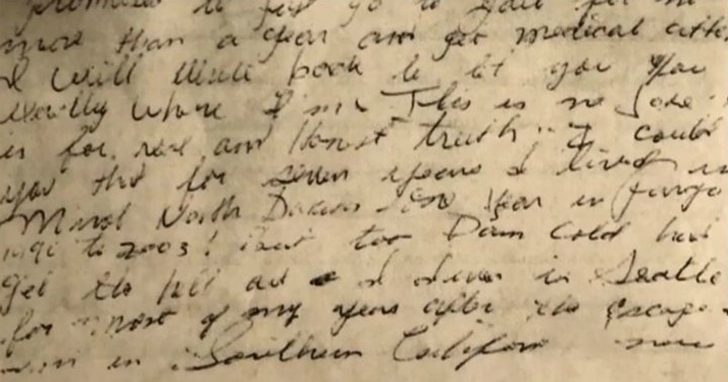 promises to first go to jail for no
more than a year and get medical atte
I will write back to let you
exactly where I'm This is no Joke
is for real and Honest truth. I could
you that for seven years I lived in
Minot North Dakota one year in Fargo
to 2003! but too Dam Cold
get the hell I lived in Seattle
for most of my years after the escape
in Southern California now